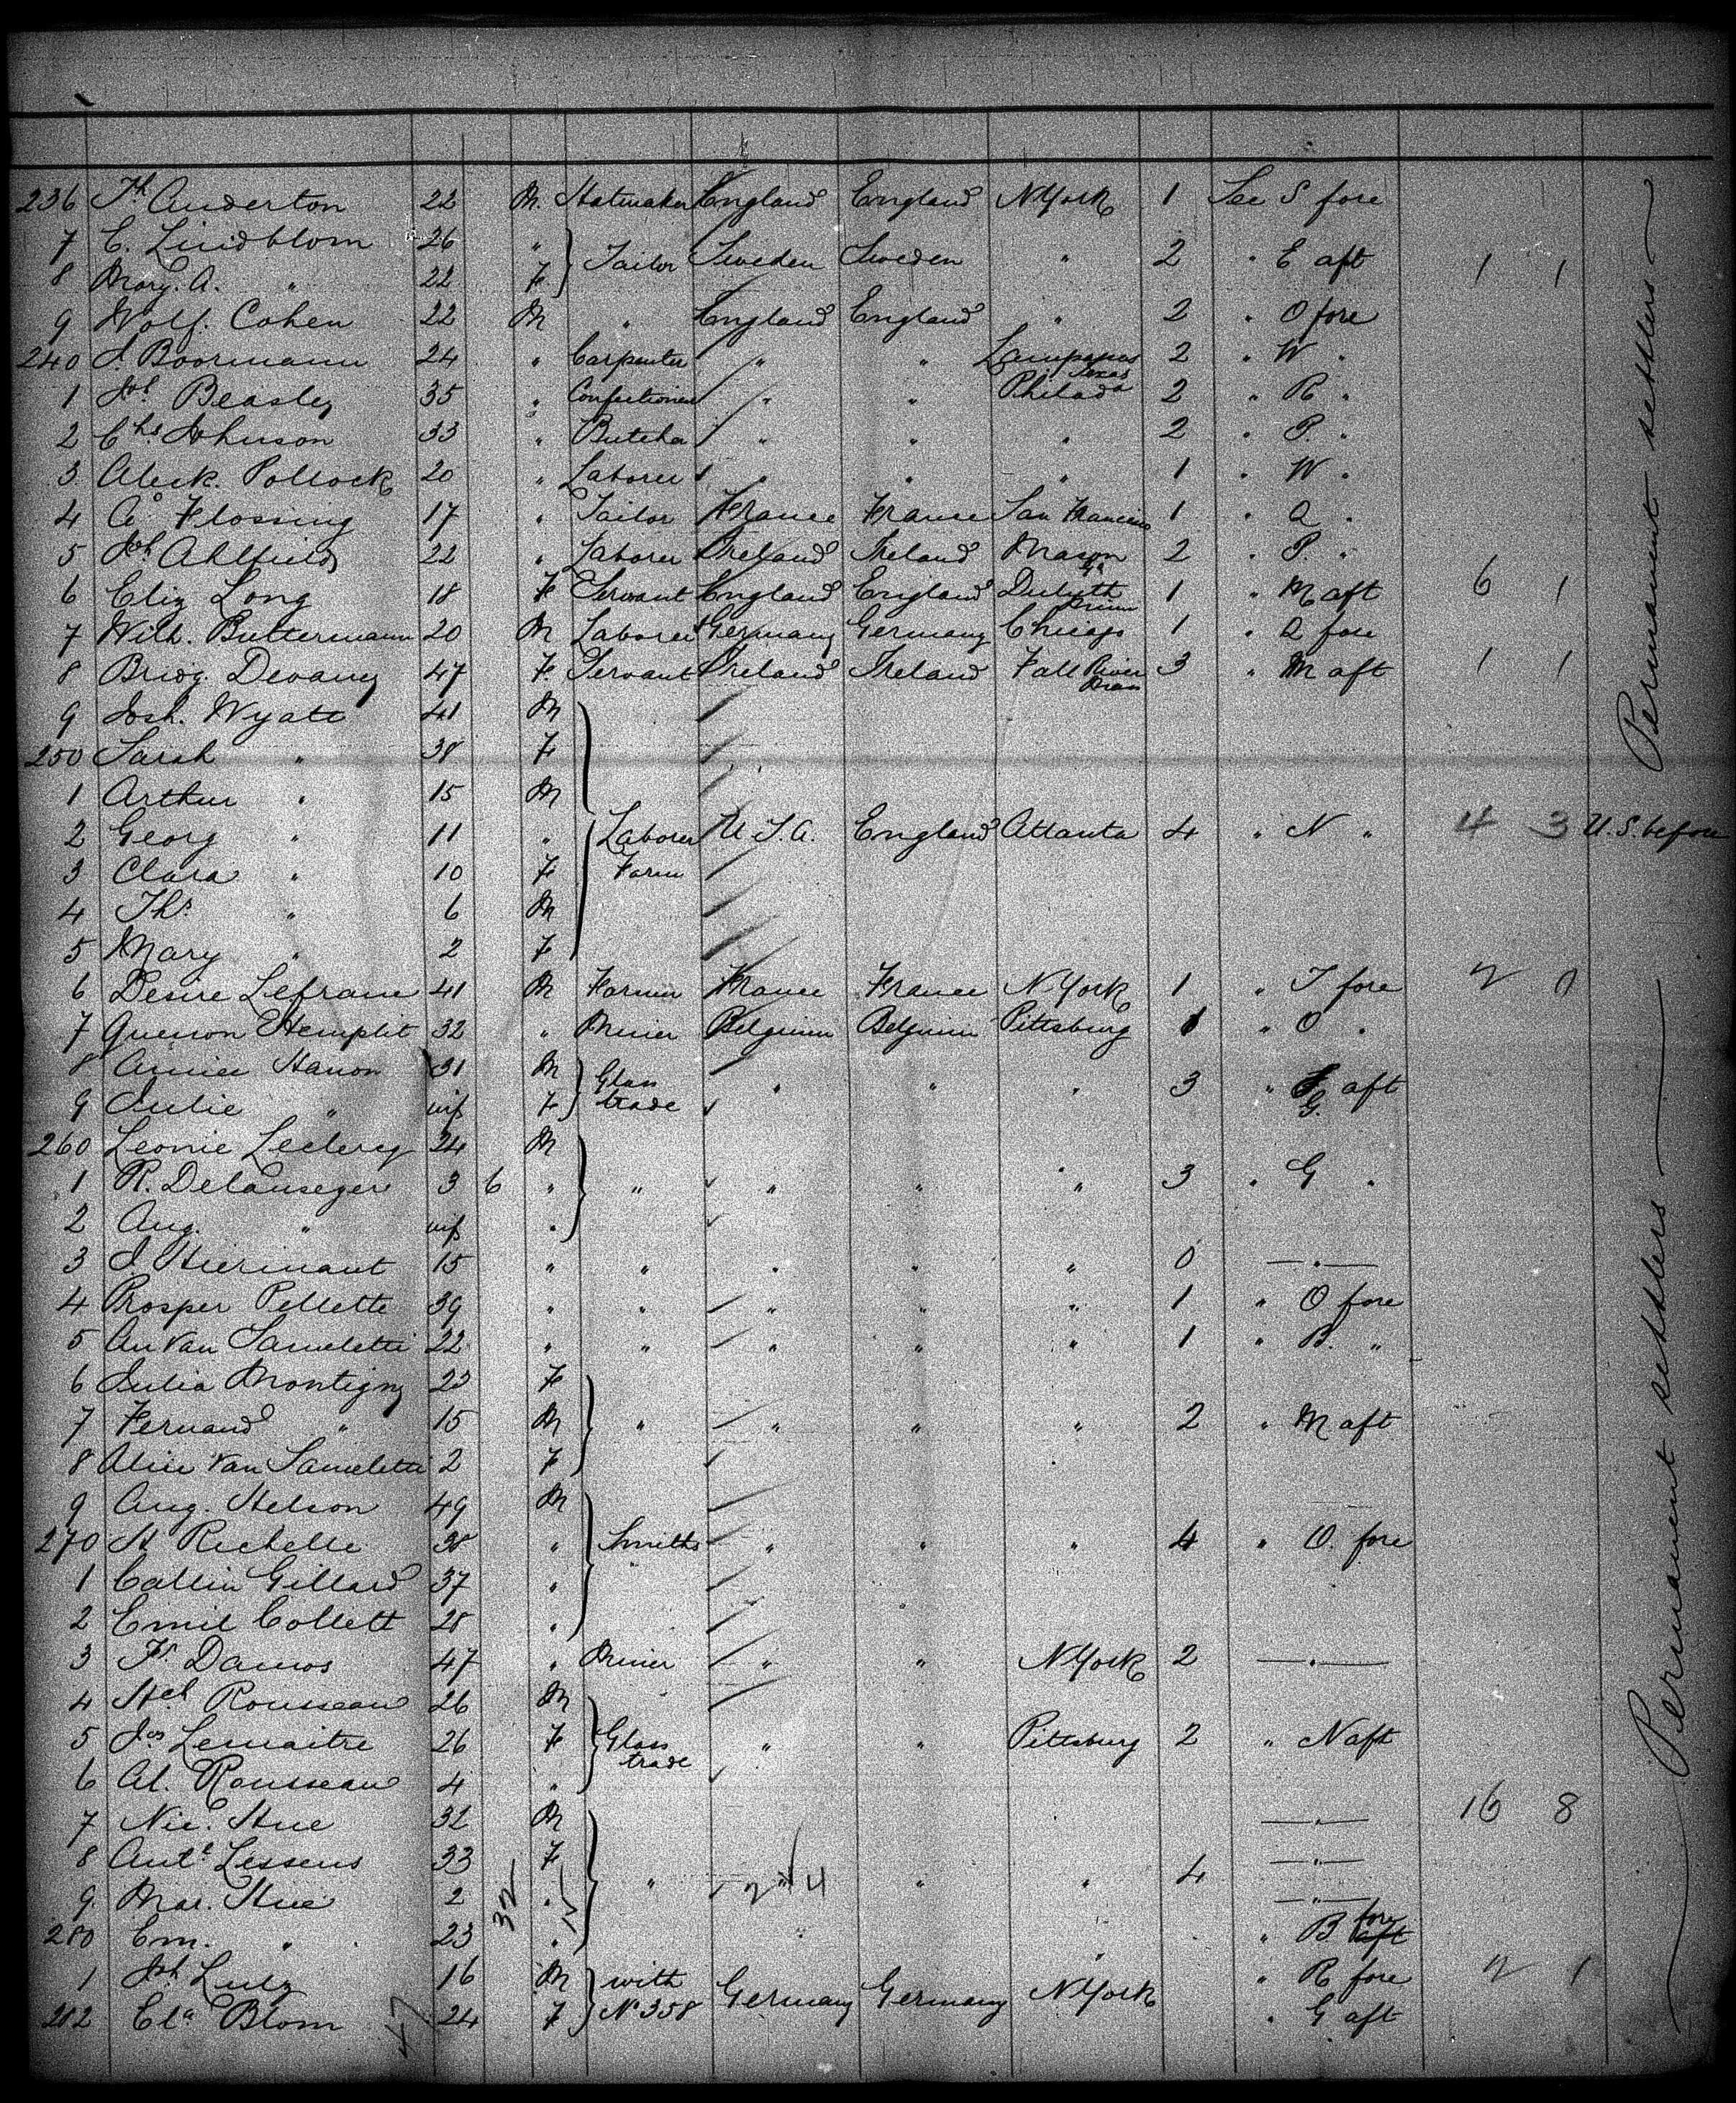 236 Th Anderton 22 M. Hatmaker England England NYork 1 See S fore
7 C. Lindblom 26 " Tailor Sweden Sweden " 2 " E aft 1 1
8 Mary. A. " 22 F
9 Wolf. Cohen 22 M " England England " 2 " O fore
240 J. Boormann 24 " Carpenter " " Lampasas Texas 2 " W "
1 Jos. Beasley 35 " Confectioner " " Philada 2 " R "
2 Chs Johnson 33 " Butcher " " " 2 " P. "
3 Aleck. Pollock 20 " Laborer " " " 1 " W "
4 Flossing 17 " Tailor France France San Francisco 1 " Q "
5 Joh Ahlfield 22 " Laborer Ireland Ireland Mason Ga 2 " P. "
6 Eliz Long 18 F Servant England England Duluth 1 " M aft 6 1
7 Wilh. Buttermann 20 M Laborer Germany Germany Chicago 1 " Q fore
8 Bridg. Devaney 47 F. Servant Ireland Ireland Fall River Mass 3 " M aft 1 1
9 Josh. Wyatt 41 M
250 Sarah " 38 F
1 Arthur " 15 M
2 Georg " 11 " Laborer U.S.A. England Atlanta 4 " N " 4 3 U.S. before
3 Clara " 10 F Farm
4 Ths " 6 M
5 Mary " 2 F
6 Desire Lefranc 41 M Farmer France France NYork 1 " T fore 2 0
7 Quenon Hemplit 32 " Miner Belgium Belgium Pittsburg 1 " O "
8 Hanon 31 M Glass trade " " " 3 " G. aft
9 Julie " inf F
260 Leonie Leclerq 24 M
1 R. Delauseger 3 6 " " " " " 3 " G "
2 Aug. " inf "
3 J. Hiernaut 15 " " " " " 0 — " —
4 Prosper Pellette 39 " " " " " 1 " O fore
5 An Van Samelette 22 " " " " " 1 " B. "
6 Julia Montigny 23 F
7 Fernand " 15 M " " " " 2 " M aft
8 Alice Van Samelette 2 F
9 Aug. Helson 49 M
270 H Richelle 38 " Smiths " " " 4 " O. fore
1 Gillard 37 "
2 Emil Collett 28 "
3 Damos 47 " Miner " " NYork 2 — " —
4 Hel Rousseau 26 M
5 Jos Lemaitre 26 F Glass trade " " Pittsburg 2 " N aft
6 Al. Rousseau 4 "
7 Nic. Hue 32 M — " — 16 8
8 Ant. Lessens 33 F " " " " 4 — " —
9 Mar. Hue 2 " — " —
280 Em. " 23 " " B fore
1 Joh Lutz 16 M with No 358 Germany Germany NYork " R fore 2 1
282 Cla Blom 24 F " G aft
Permanent settlers
Permanent settlers
32
15
2 14
47